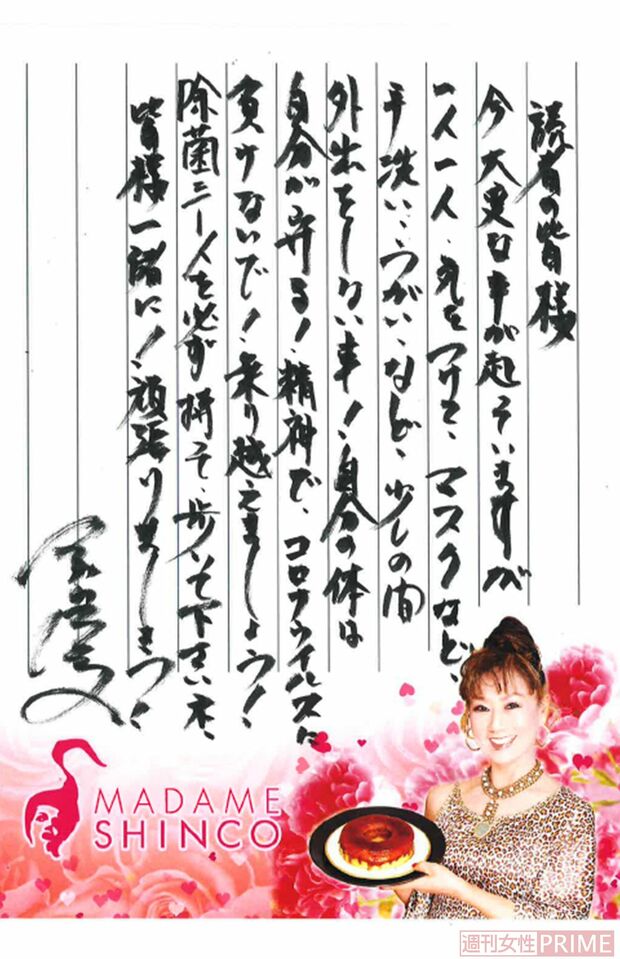 読者の皆様
今大変な事が起きていますが
一人一人、気をつけて、マスクなど、
手洗い、うがい、など、少しの間
外出をしない事!、自分の体は
自分が守る!、精神で、コロナウイルスに
負けないで!、乗り越えましょう!、
除菌ミストを必ず持って、歩いて下さいネ、
皆様一緒に!、頑張りましょう!
MADAME
SHINCO
週刊女性PRIME